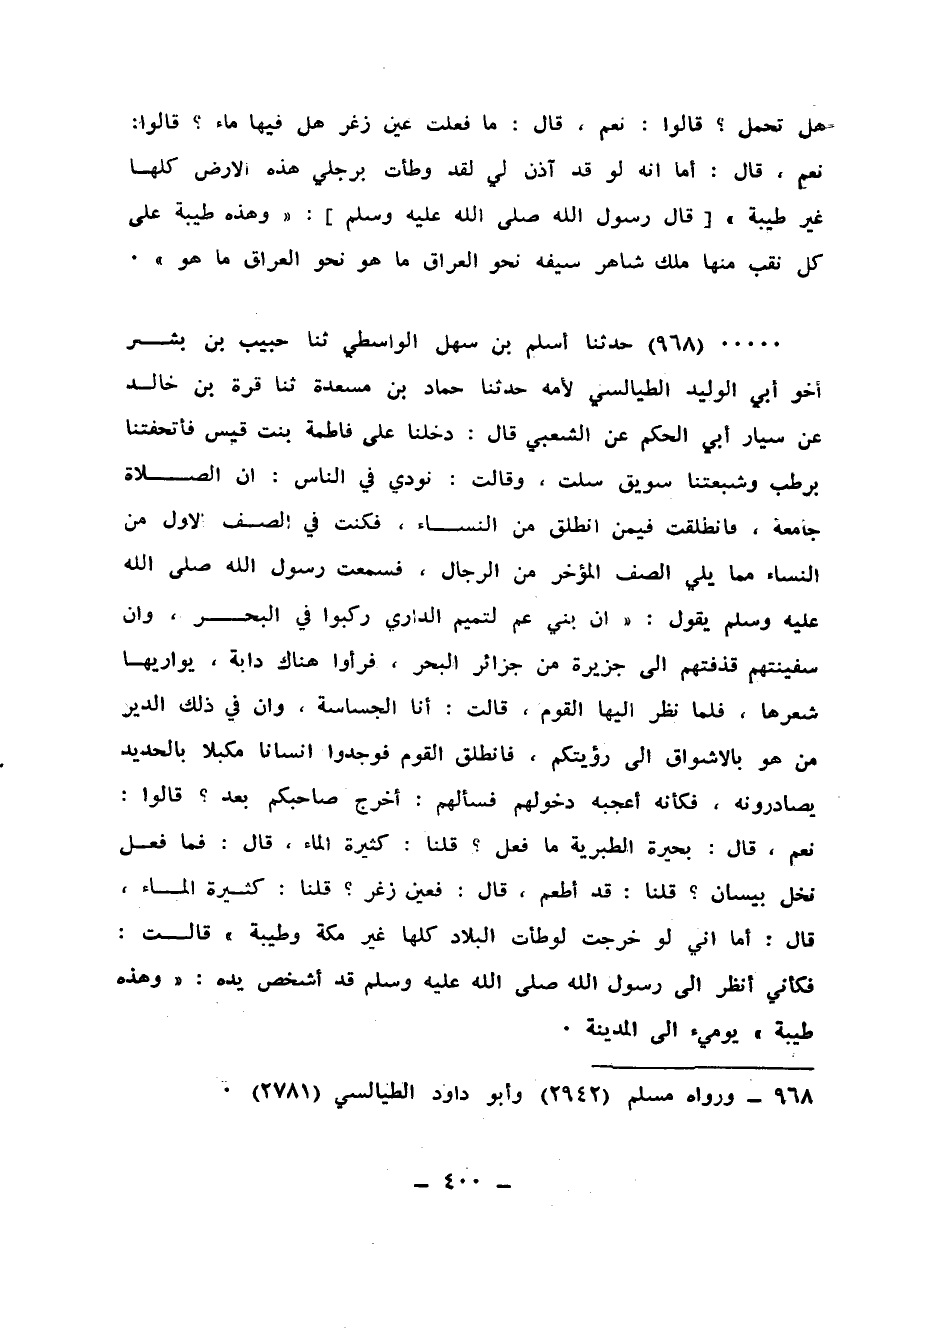 هل تحمل ؟ قالوا : نعم ، قال : ما فعلت عين زغر هل فيها ماء ؟ قالوا:
نعم ، قال : أما انه لو قد آذن لي لقد وطأت برجلي هذه الارض كلها
غير طيبة » [ قال رسول الله صلى الله عليه وسلم ] : « وهذه طيبة على
كل نقب منها ملك شاهر سيفه نحو العراق ما هو نحو العراق ما هو » ٠
٠٠٠٠٠ (٩٦٨) حدثنا أسلم بن سهل الواسطي ثنا حبيب بن بشر
أخو أبي الوليد الطيالسي لأمه حدثنا حماد بن مسعدة ثنا قرة بن خالد
عن سيار أبي الحكم عن الشعبي قال : دخلنا على فاطمة بنت قيس فأتحفتنا
برطب وشبعتنا سويق سلت ، وقالت : نودي في الناس : ان الصلاة
جامعة ، فانطلقت فيمن انطلق من النساء ، فكنت في الصف الاول من
النساء مما يلي الصف المؤخر من الرجال ، فسمعت رسول الله صلى الله
عليه وسلم يقول : « ان بني عم لتميم الداري ركبوا في البحر ، وان
سفينتهم قذفتهم الى جزيرة من جزائر البحر ، فرأوا هناك دابة ، يواريها
شعرها ، فلما نظر اليها القوم ، قالت : أنا الجساسة ، وان في ذلك الدير
من هو بالاشواق الى رؤيتكم ، فانطلق القوم فوجدوا انسانا مكبلا بالحديد
يصادرونه ، فكأنه أعجبه دخولهم فسألهم : أخرج صاحبكم بعد ؟ قالوا :
نعم ، قال : بحيرة الطبرية ما فعل ؟ قلنا : كثيرة الماء ، قال : فما فعل
نخل بيسان ؟ قلنا : قد أطعم ، قال : فعين زغر ؟ قلنا : كثيرة الماء ،
قال : أما اني لو خرجت لوطأت البلاد كلها غير مكة وطيبة » قالت :
فكأني أنظر الى رسول الله صلى الله عليه وسلم قد أشخص يده : « وهذه
طيبة » يوميء الى المدينة ٠
٩٦٨ ـ ورواه مسلم (٢٩٤٢) وأبو داود الطيالسي (٢٧٨١) ٠
ـ ٤٠٠ ـ